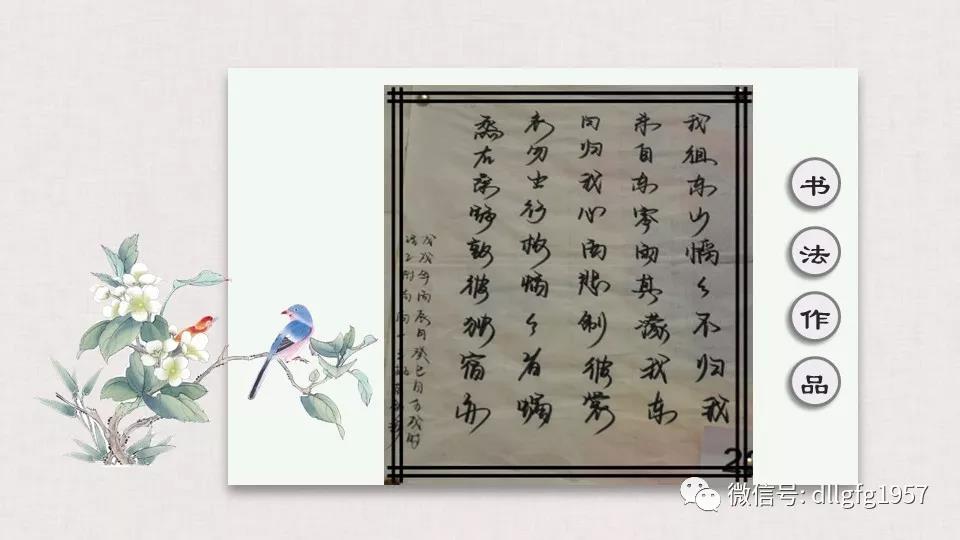 我徂东山慆々不归我
来自东零雨其濛我东
曰归我心西悲制彼裳
衣勿士行枚蜎々者蠋
烝在桑野敦彼独宿亦
戊戌年丙辰月癸巳日
书法作品
微信号: dllgfg1957